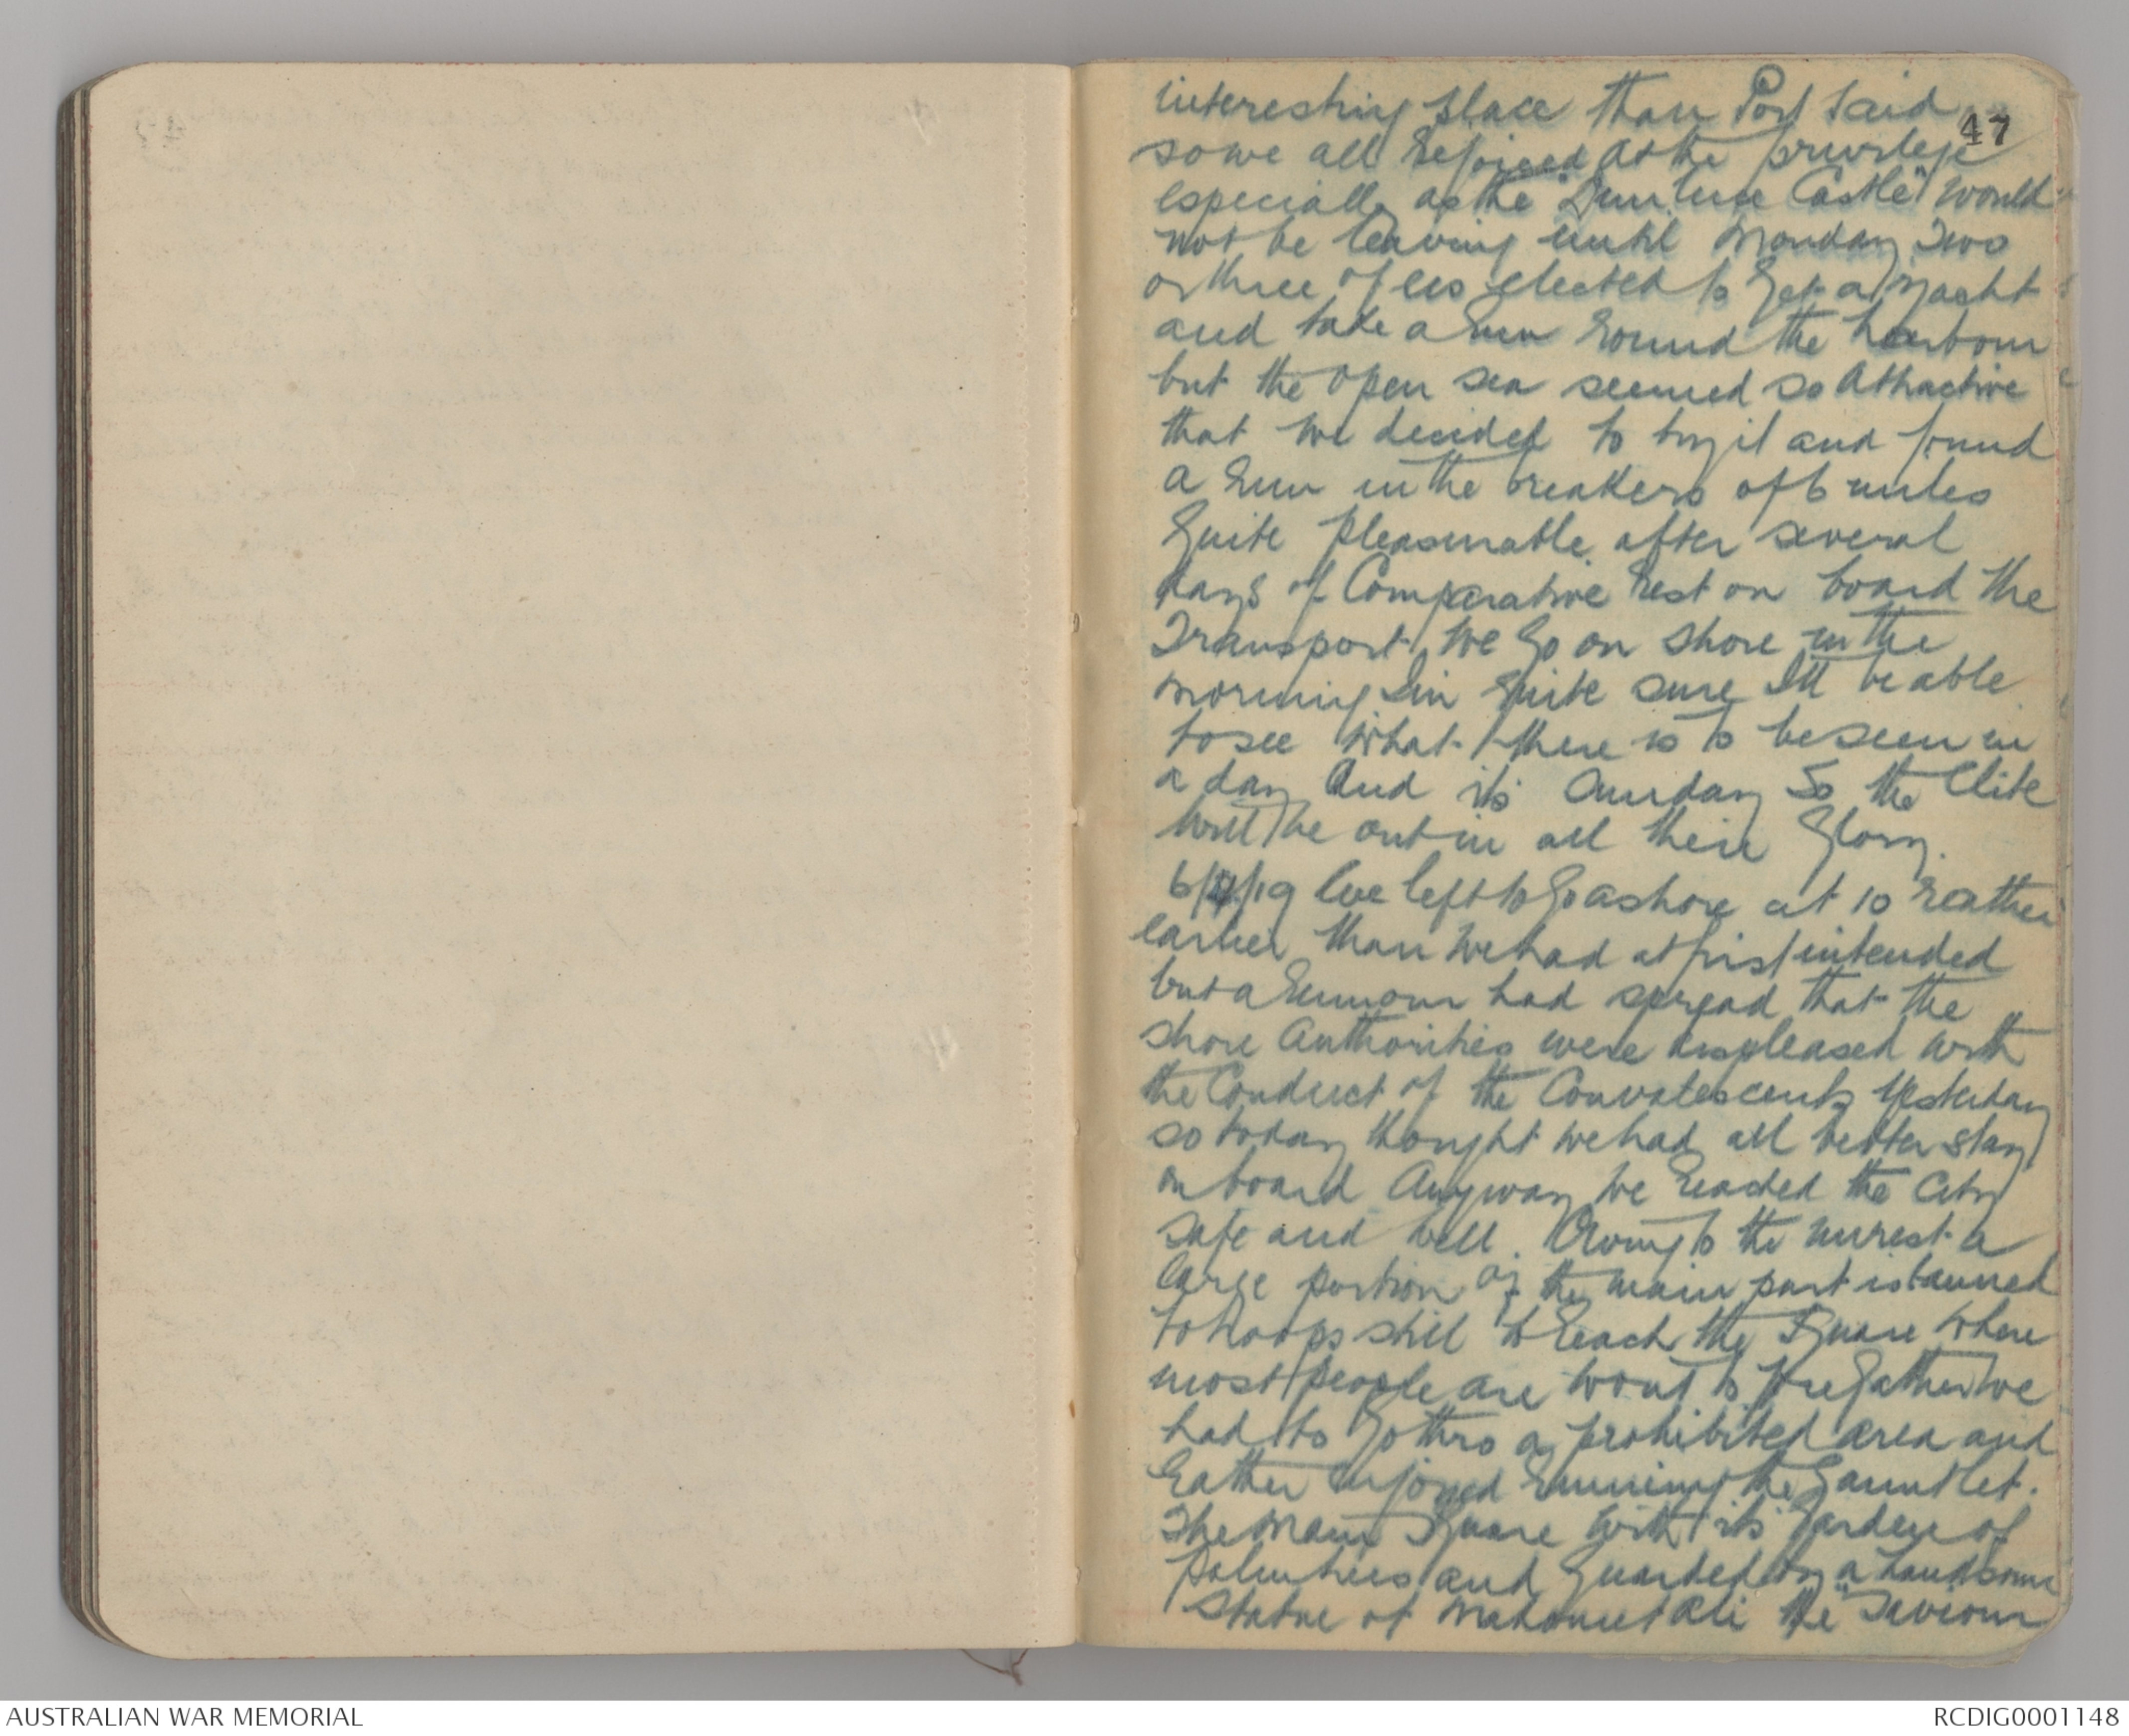 interesting place than Port Said
47
so we all rejoiced at the privilege
especially as the "Dunluce Castle" would
not be leaving until Monday. Two
or three of us elected to get a yacht
and take a run round the harbour
but the open sea seemed so attractive
that we decided to try it and found
a run in the breakers of 6 miles
quite pleasurable after several
days of comparative rest on board the
Transport. We go on shore in the
morning I'm quite sure I'll be able
to see what there is to be seen in
a day and its Sunday so the Elite
will be out in all their glory.
6/4/19 We left to go ashore at 10 rather
earlier than we had at first intended
but a rumour had spread that the
shore Authorities were displeased with
the conduct of the Convalescents yesterday
so today thought we had all better stay
on board Anyway we reached the City
safe and well. Owing to the unrest a
large portion of the main part is banned
to troops still to reach the Square where
most people are wont to foregather we
had to go thro a prohibited area and
rather enjoyed running the gauntlet.
The Main Square with its garden of
palmtrees and guarded by a handsome
statue of Mahomet Ali the "Saviour
AUSTRALIAN WAR MEMORIAL
RCDIG0001148